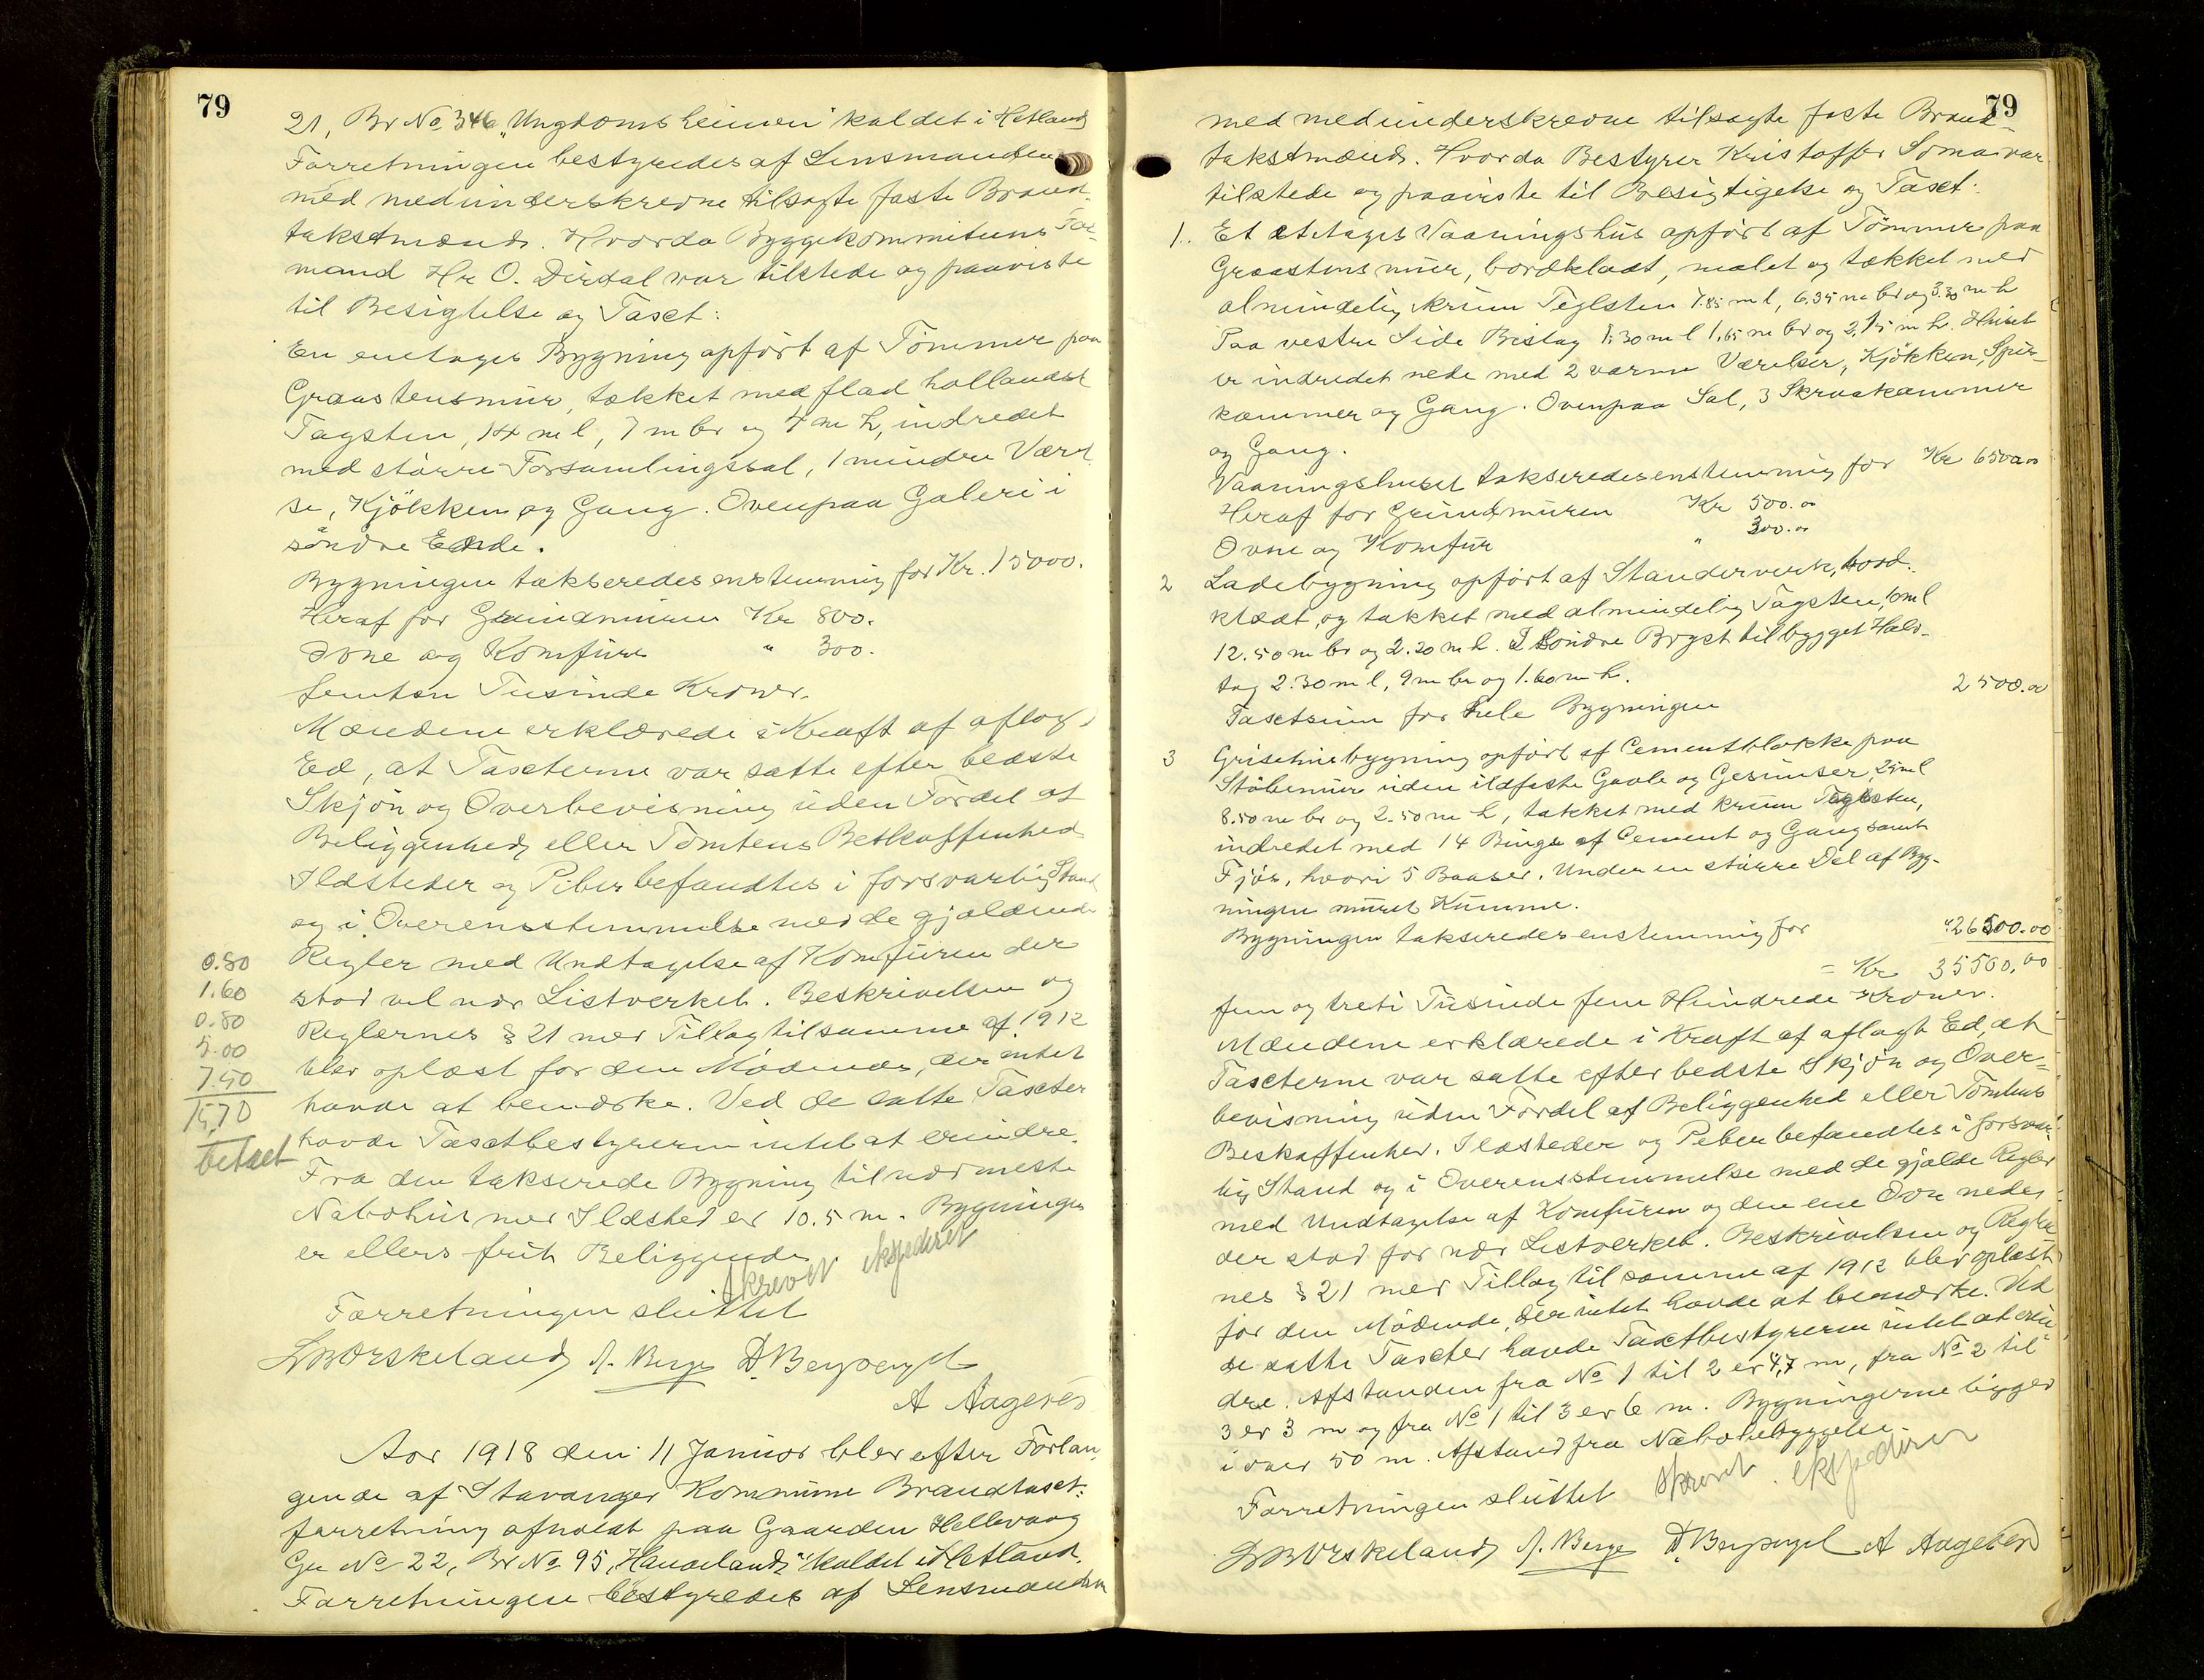 79
21, Br No 346 "Ungdomsheimen" kaldet i Hetland
Forretningen bestyredes af Lensmanden
med medunderskrevne tilsagte faste Brand-
takstmænd. Hvorda Byggekommiteens For-
mand Hr O. Dirdal var tilstede og paaviste
til Besigtelse og Taxt:
En enetages Bygning opført af Tømmer paa
Graastensmur, tækket med flad hollandsk
Tagsten, 14 m l, 7 m br og 4 m h, indredet
med større Forsamlingssal, 1 mindre Værel
se, Kjøkken og Gang. Ovenpaa Galeri i
søndre Ende.
Bygningen takseredes enstemmig for Kr. 15000.
Heraf for Grundmuren Kr 800.
Ovne og Komfure " 300.
femten Tusinde Kroner.
Mændene erklærede i Kraft af aflagt
Ed, at Taxterne var satte efter bedste
Skjøn og Overbevisning uden Fordel af
Beliggenhed eller Tomtens Beskaffenhed
Ildsteder og Piber befandtes i forsvarlig Stand
og i Overensstemmelse med de gjældende
Regler med Undtagelse af Komfuren der
stod vel nær Listverket. Beskrivelsen og
Reglernes § 21 med Tillæg til samme af 1912
blev oplæst for den Mødende, der intet
havde at bemærke. Ved de satte Taxter
havde Taxtbestyreren intet at erindre.
Fra den takserede Bygning til nærmeste
Nabohus med Ildsted er 10.5 m. Bygningen
er ellers frit Beliggende.
0.80
1.60
0.80
5.00
7.50
15,70
betalt
Skrevet ekspederet
Forretningen sluttet
L Worskeland A. Berge D. Bergpegel
A Aagesen
Aar 1918 den 11 Januar blev efter Forlan-
gende af Stavanger Kommune Brandtaxt-
forretning afholdt paa Gaarden Hillevaag
Gr No 22, Br No 95, "Haugeland" kaldet i Hetland.
Forretningen bestyredes af Lensmanden
79
med medunderskrevne tilsagte faste Brand-
takstmænd. Hvorda Bestyrer Kristoffer Soma var
tilstede og paaviste til Besigtigelse og Taxt:
1. Et etetages Vaaningshus opført af Tømmer paa
Graastensmur, bordklædt, malet og tækket med
almindelig krum Teglsten 7.85 m l, 6.35 m br og 3.30 m h
Paa vestre Side Bislag 1.30 m l 1,65 m br og 2,15 m h. Huset
er indredet nede med 2 varme Værelser, Kjøkken, Spis-
kammer og Gang. Ovenpaa Sal, 3 Skraakammer
og Gang.
Vaaningshuset takseredes enstemmig for Kr 6500.00
Heraf for Grundmuren Kr 500.00
Ovne og Komfur " 300.00
2 Ladebygning opført af Standerverk, bord-
klædt, og tækket med almindelig Tagsten, 10 m l
12.50 m br og 2.20 m h. I søndre Bryst tilbygget Halv-
tag 2.30 m l, 9 m br og 1.60 m h.
Taxtsum for hele Bygningen 2500.00
3 Grisehusbygning opført af Cementblokke paa
Støbemur uden ildfaste Gavle og Gesimser, 25 m l
8.50 m br og 2.50 m h, tækket med krum Teglsten,
indredet med 14 Binge af Cement og Gang samt
Fjøs, hvori 5 Baaser. Under en større Del af Byg-
ningen muret Kumme.
Bygningen takseredes enstemmig for " 26500.00
= Kr 35500,00
fem og treti Tusinde fem Hundrede Kroner.
Mændene erklærede i Kraft af aflagt Ed, at
Taxterne var satte efter bedste Skjøn og Over-
bevisning uden Fordel af Beliggenhed eller Tomtens
Beskaffenhed. Ildsteder og Piber befandtes i forsvar-
lig Stand og i Overensstemmelse med de gjælde Regler
med Undtagelse af Komfuren og den ene Ovn nede,
der stod for nær Listverket. Beskrivelsen og Regler-
nes § 21 med Tillæg til samme af 1912 blev oplæst
for den Mødende, der intet havde at bemærke. Ved
de satte Taxter havde Taxtbestyreren intet at erin-
dre. Afstanden fra No 1 til 2 er 4,7 m, fra No 2 til
3 er 3 m og fra No 1 til 3 er 6 m. Bygningerne ligger
i over 50 m. Afstand fra Nabobebyggelse.
Forretningen sluttet Skrevet ekspederet
L Worskeland A. Berge D. Bergpegel A Aagesen